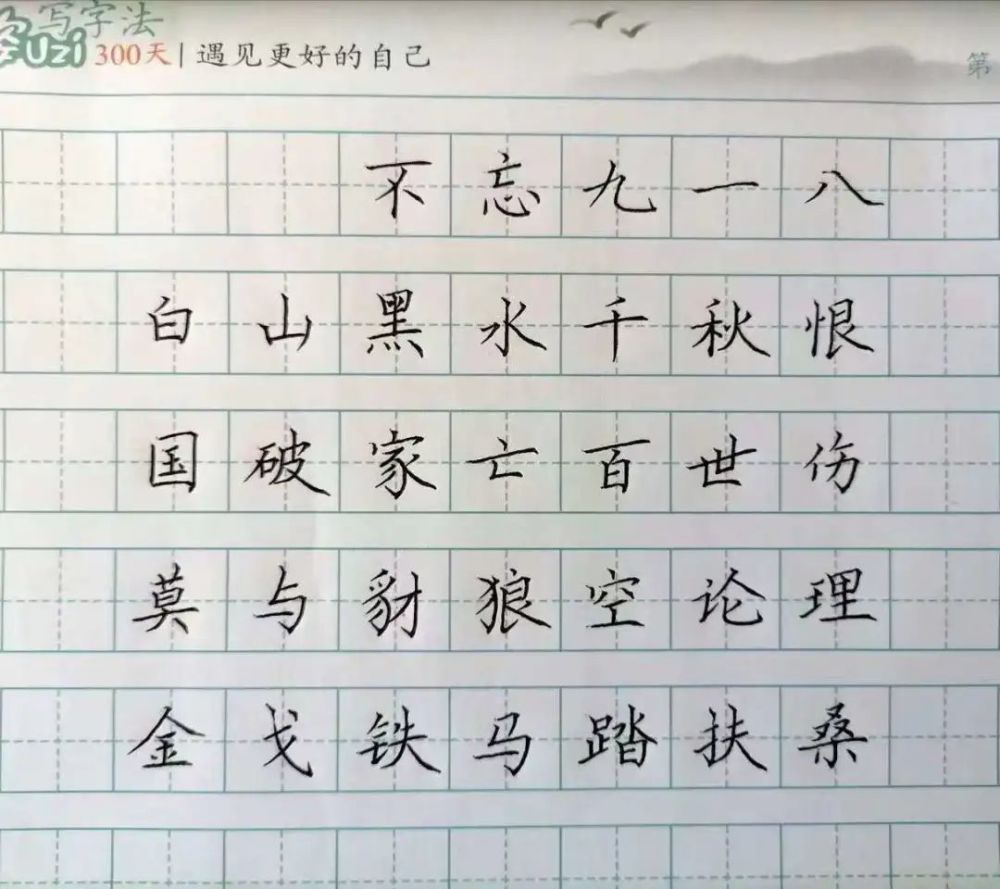 写字法
Uzi 300天 | 遇见更好的自己
第
不忘九一八
白山黑水千秋恨
国破家亡百世伤
莫与豺狼空论理
金戈铁马踏扶桑